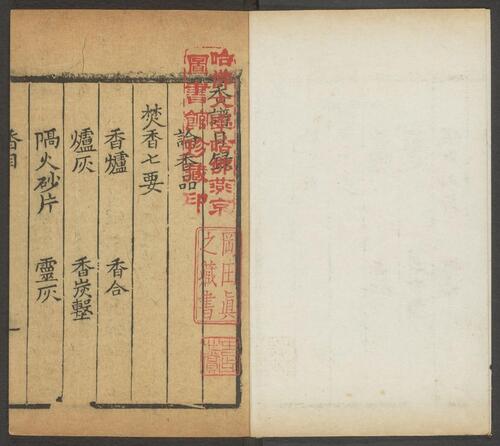 哈佛大學哈佛燕京
圖書館珍藏印
岡田眞
之藏書
香譜目錄
論香品
焚香七要
香爐　香合
爐灰　香炭墼
隔火砂片　靈灰
香目　一